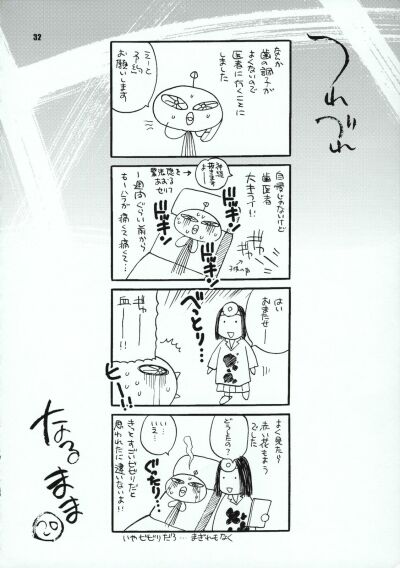 32
つれづれ
なんか
歯の調子が
よくないので
医者に行くことに
しました
えーと
予約
お願いします
自慢じゃないけど
歯医者
大キライ!!
神経
抜きます
よー
ドキン!
ドキン!
ドキン!
一週間ぐらい前から
もーハラが痛くて痛くて…
はい
おまたせー
べっとり…
血ー!!
ヒー!!
よく見たら
赤い花もよう
でした
どうしたの?
いえ…
ぐったり…
きっとすごいビビリだと
思われたに違いないよ!!
いやビビリだろ…まぎれもなく
なるまま